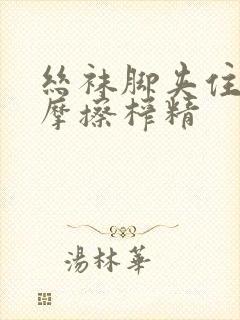 丝袜脚夹住
摩擦榨精
湯林華